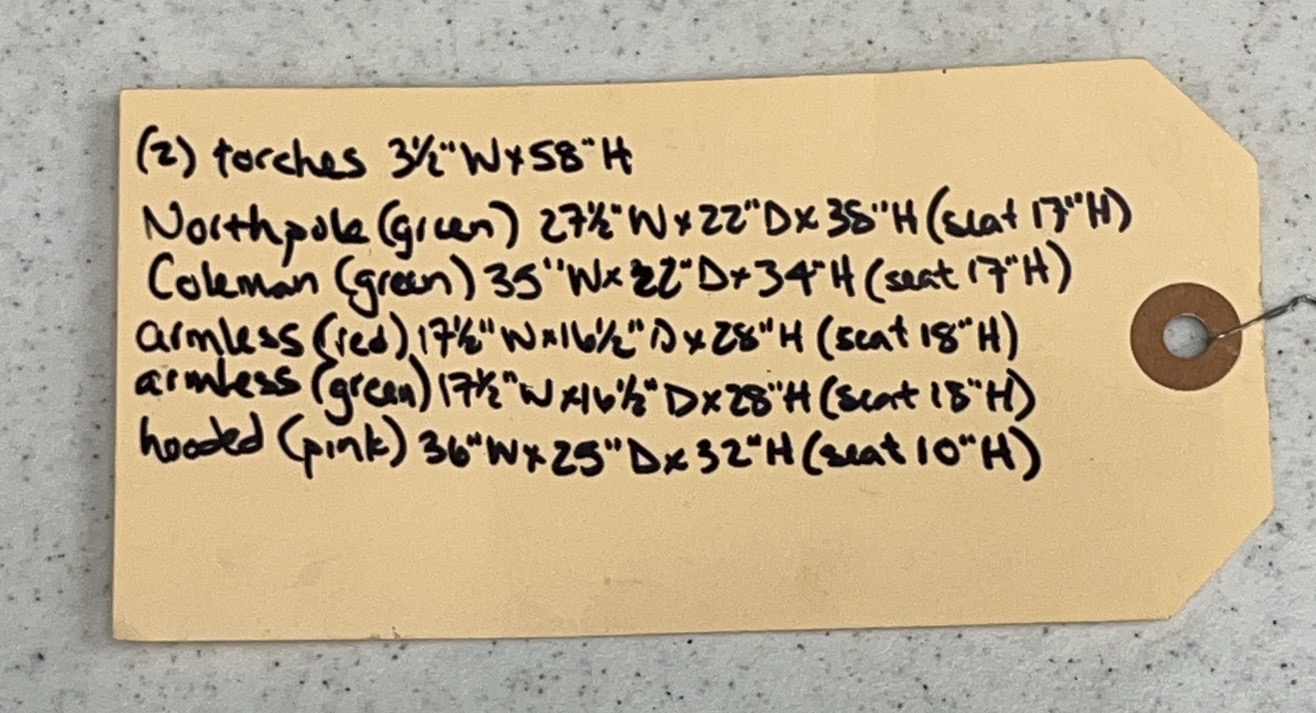 (2) torches 3½"W x 58"H
Northpole (green) 27½"W x 22"D x 38"H (seat 17"H)
Coleman (green) 35"W x 22"D x 34"H (seat 17"H)
armless (red) 17½"W x 16½"D x 28"H (seat 18"H)
armless (green) 17½"W x 16½"D x 28"H (seat 18"H)
hooded (pink) 36"W x 25"D x 32"H (seat 10"H)